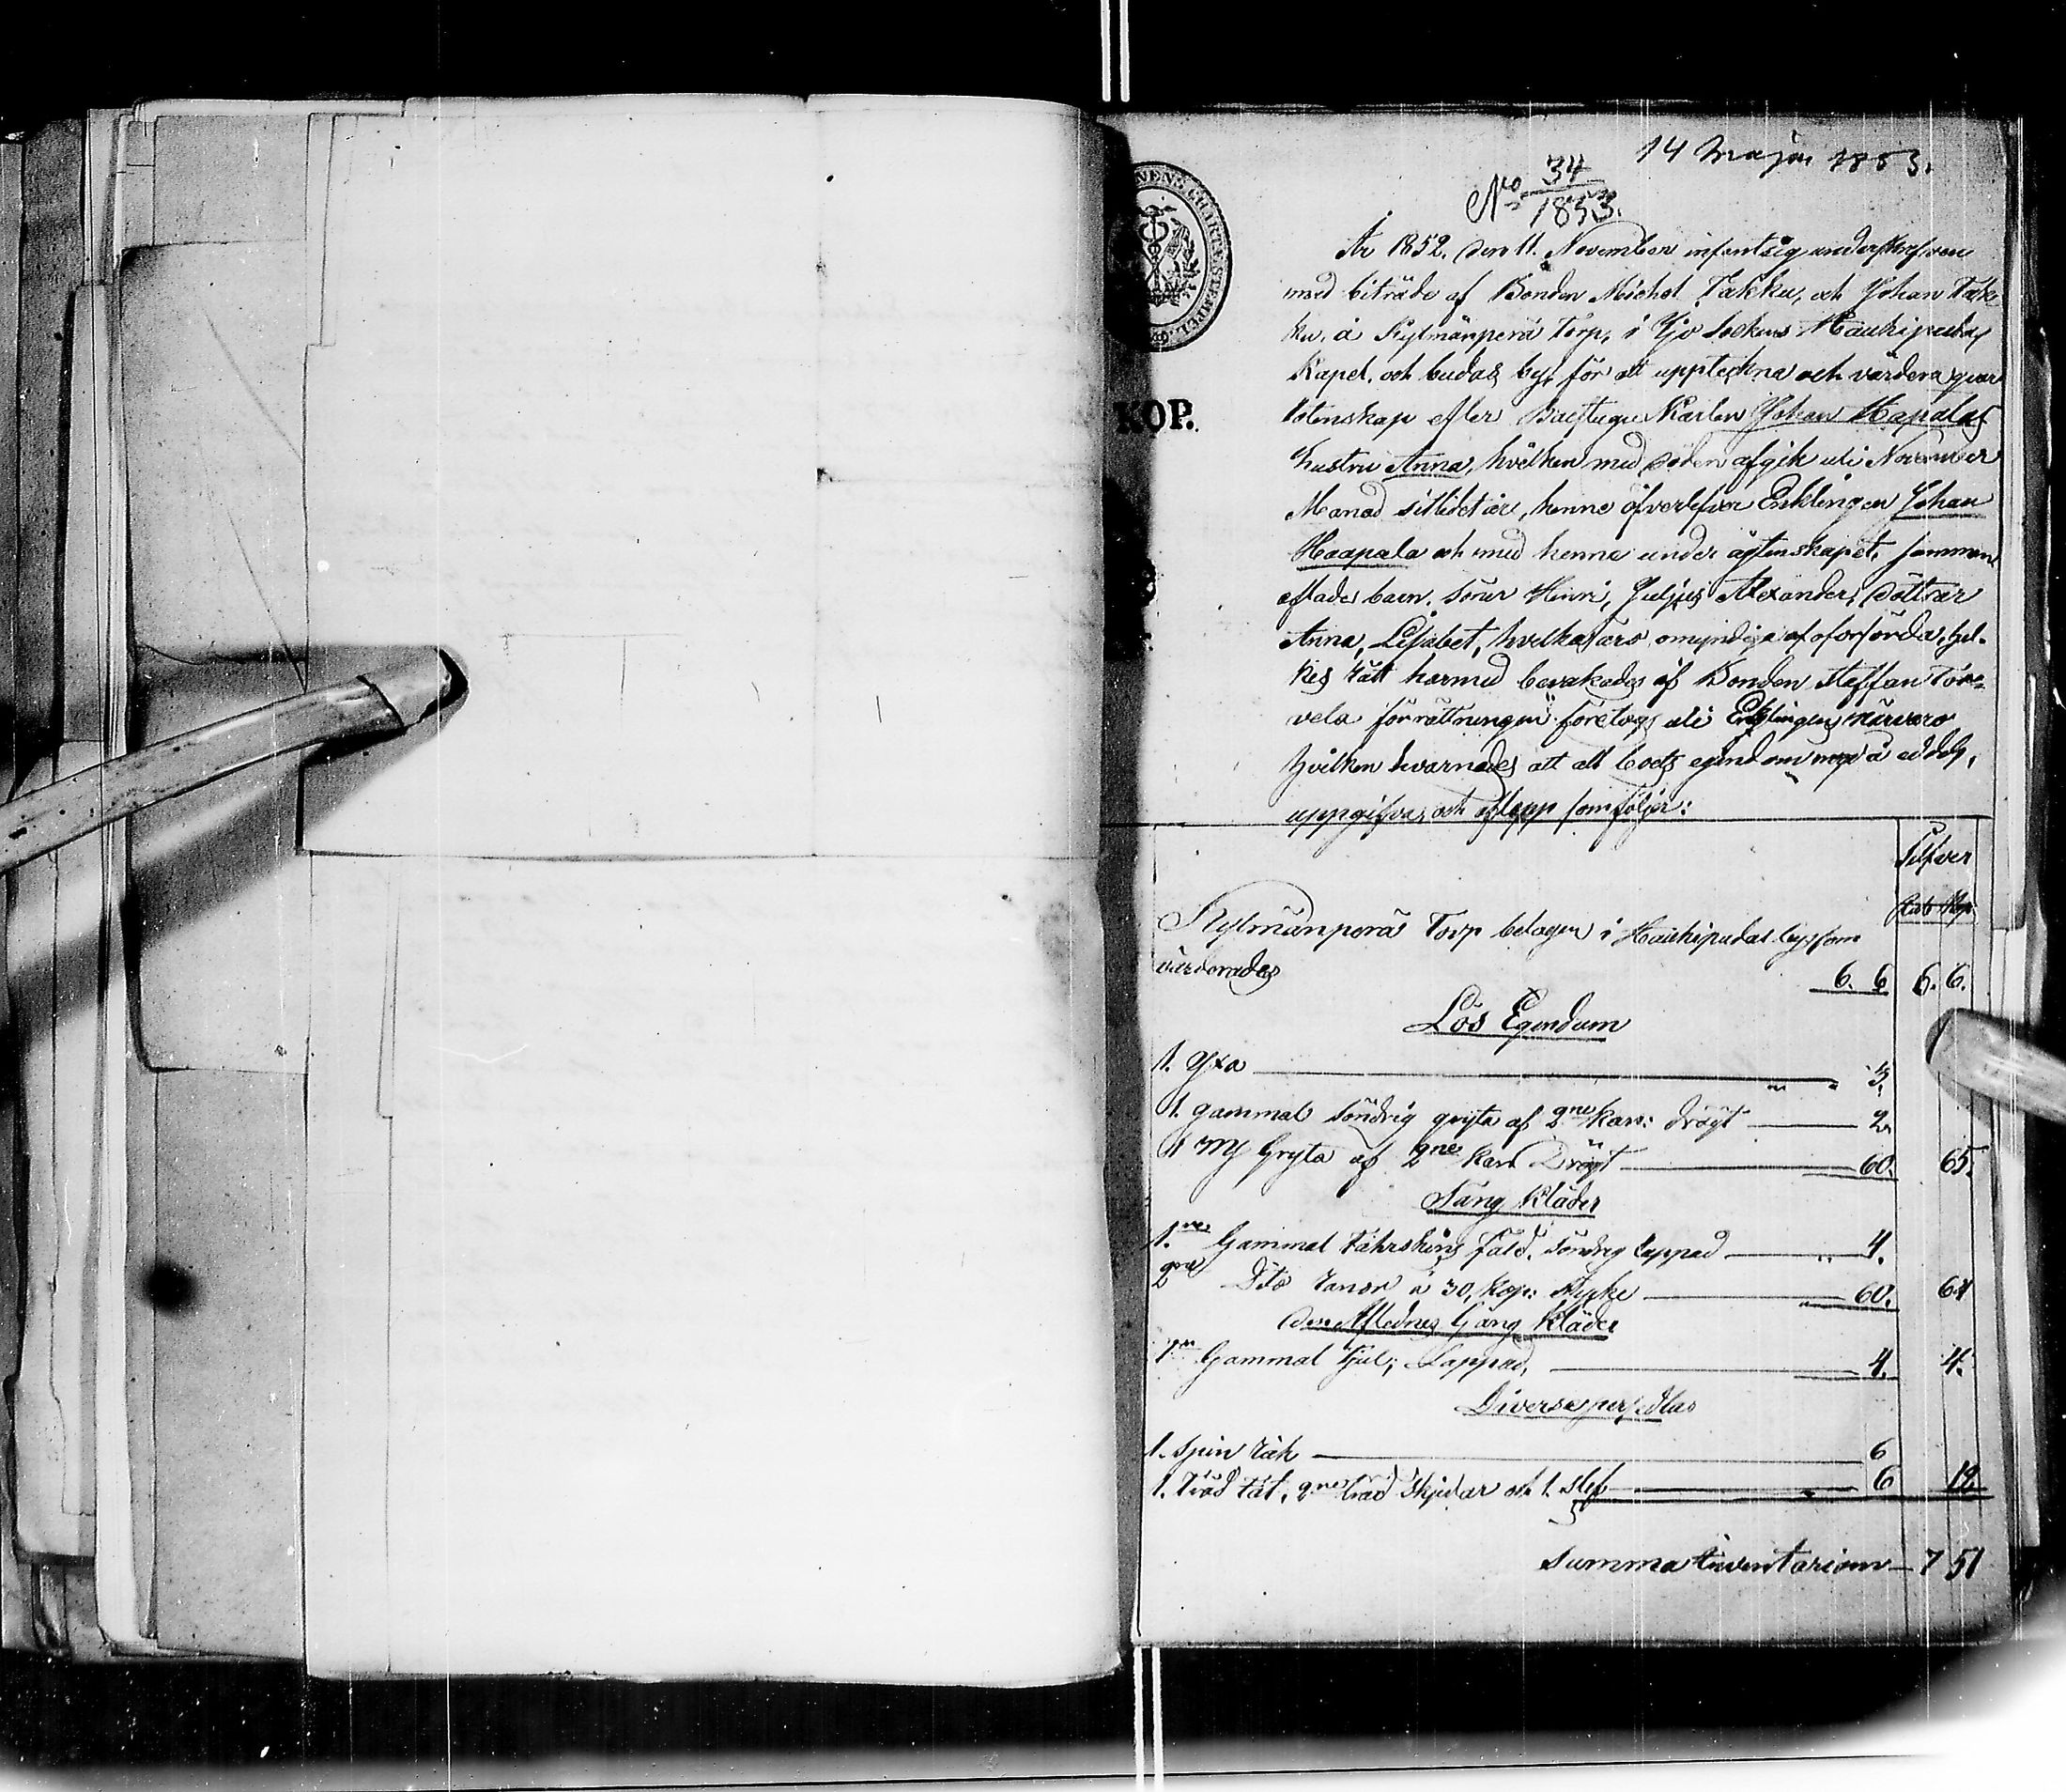 14 Maji 1853.
No 34/1853.
NENS CHARTE STEMPEL
KOP.
År 1852. den 11. November infant sig underskrefven
med biträde af Bonden Michel Takku, och Johan Tak
ku, å Kylmänperä Torp, i Ijo Sockens Haukipudas
Kapel, och budas by, för att uppteckna och värdera qvar
lotenskap efter Backstugu Karlen Johan Hapalas
hustru Anna, hvilken med döden afgik uti November
Månad sistledet år, henne öfverlefver Enklingen Johan
Haapala och med henne under ägtenskapet, samman
aflade barn. söner Henri, Juljus Alexander, Döttrar
Anna, Lisabet, hvilka äro omyndiga och oforsörda, hvil-
kes rätt härmed bevakades af Bonden Steffan Tör-
vela förrättningen företogs uti Enklingens närvaro
hvilken hvarnades att all boets egendom up å edelig,
uppgifva, och aflopp som följer:
Silfver
Rub Kop
Kylmänperä Torp belagen i Haukipudas by, som
värderades 6. 6 6. 6.
Lös Egendum
1. Yxa 3.
1. gammal söndrig gryta af 2ne kan: drägt 2
1 Ny Gryta af 2ne kan Drägt 60. 65.
Säng Kläder
1. Gammal Fåhrskins fäld, söndrig lappad 4.
2ne Dito ranor a 30, kop: stycke 60. 64
Den Aflednes Gång Kläder
1 Gammal kjul; Lappad, 4. 4.
Diverse persedlar
1. Spin råk 6
1. träd fat, 2ne träd skjedar och 1. slef 6 12
Summa Inventarium 7 51